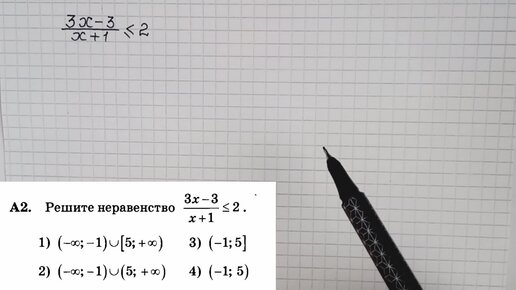 (3x-3)/(x+1) ≤ 2
А2. Решите неравенство (3x-3)/(x+1) ≤ 2.
1) (-∞; -1)∪[5; +∞) 3) (-1; 5]
2) (-∞; -1)∪(5; +∞) 4) (-1; 5)